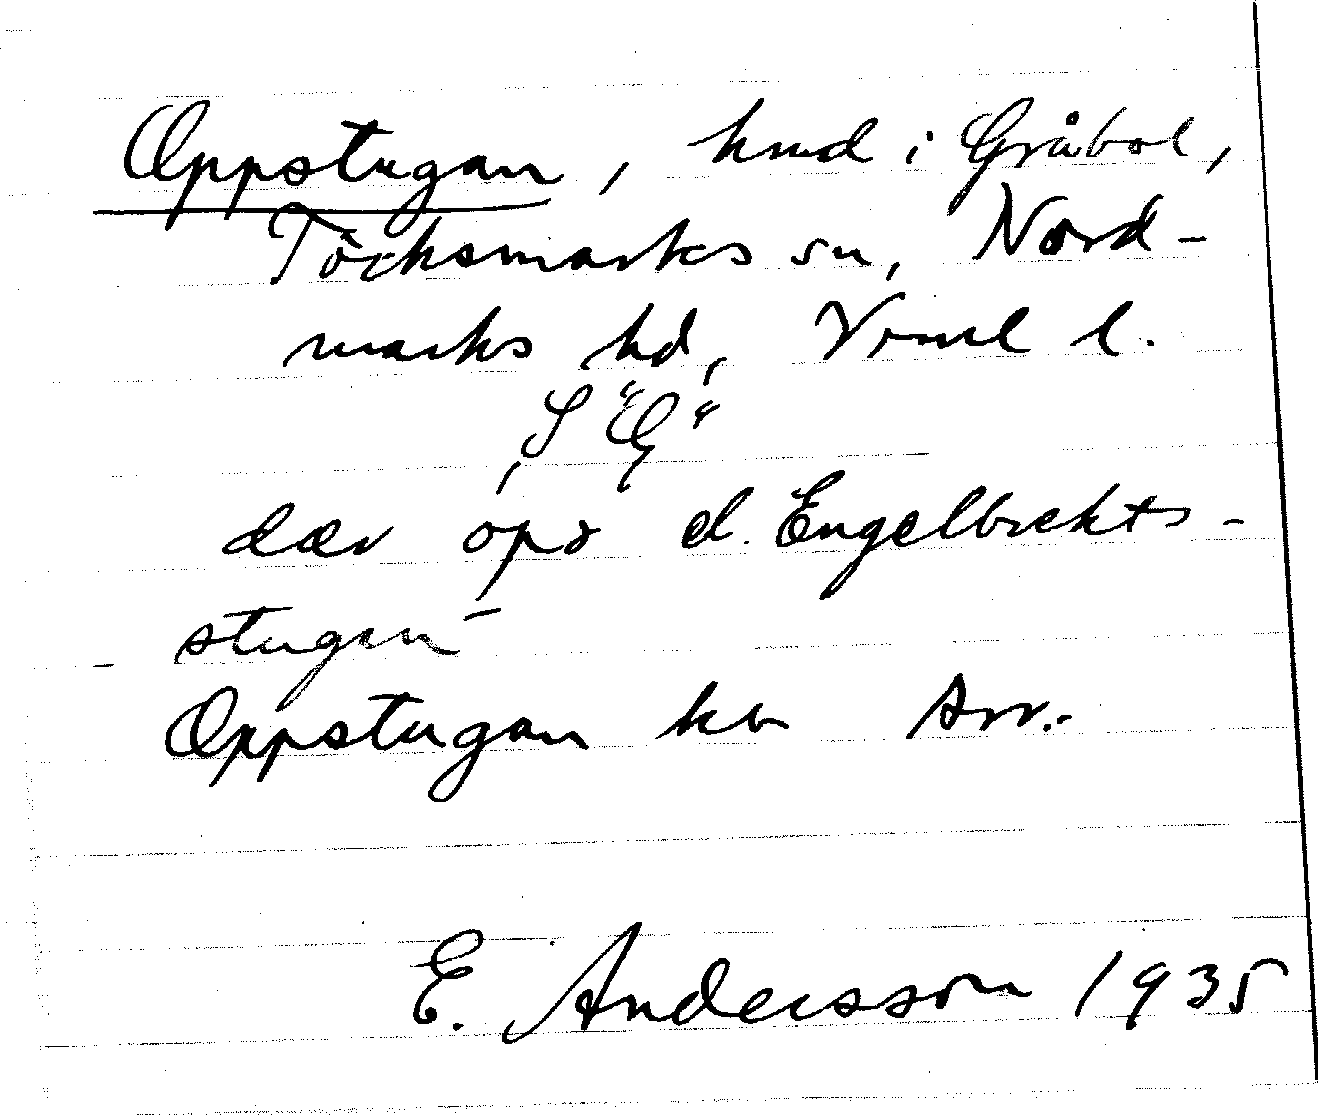 Oppstugan, hmd i Gråbol,
Töcksmarks sn, Nord-
marks hd, Vrml l.
S "G"
dær ˌòpə el. Engelbrekts-
stugan
Oppstugan ko
E. Andersson 1935